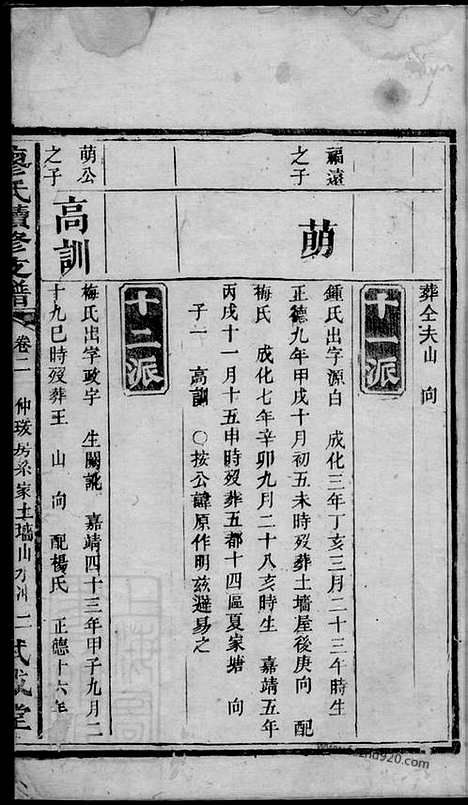 葬仝夫山　向
十一派
福遠
之子
萌
鍾氏出字源白　成化三年丁亥三月二十三年時生
正德九年甲戌十月初五未時歿葬土墻屋後庚向　配
梅氏　成化七年辛卯九月二十八亥時生　嘉靖五年
丙戌十一月十五申時歿葬五都十四區夏家塘　向
子一　高訓　○按公諱原作明兹避易之
十二派
萌公
之子
高訓
梅氏出字政字　生闕詵　嘉靖四十三年甲子九月二
十九巳時歿葬王　山　向　配楊氏　正德十六年
廖氏續修支譜　卷二　仲璈房梁家土墻山　二　武威堂
www.zhnd920.com